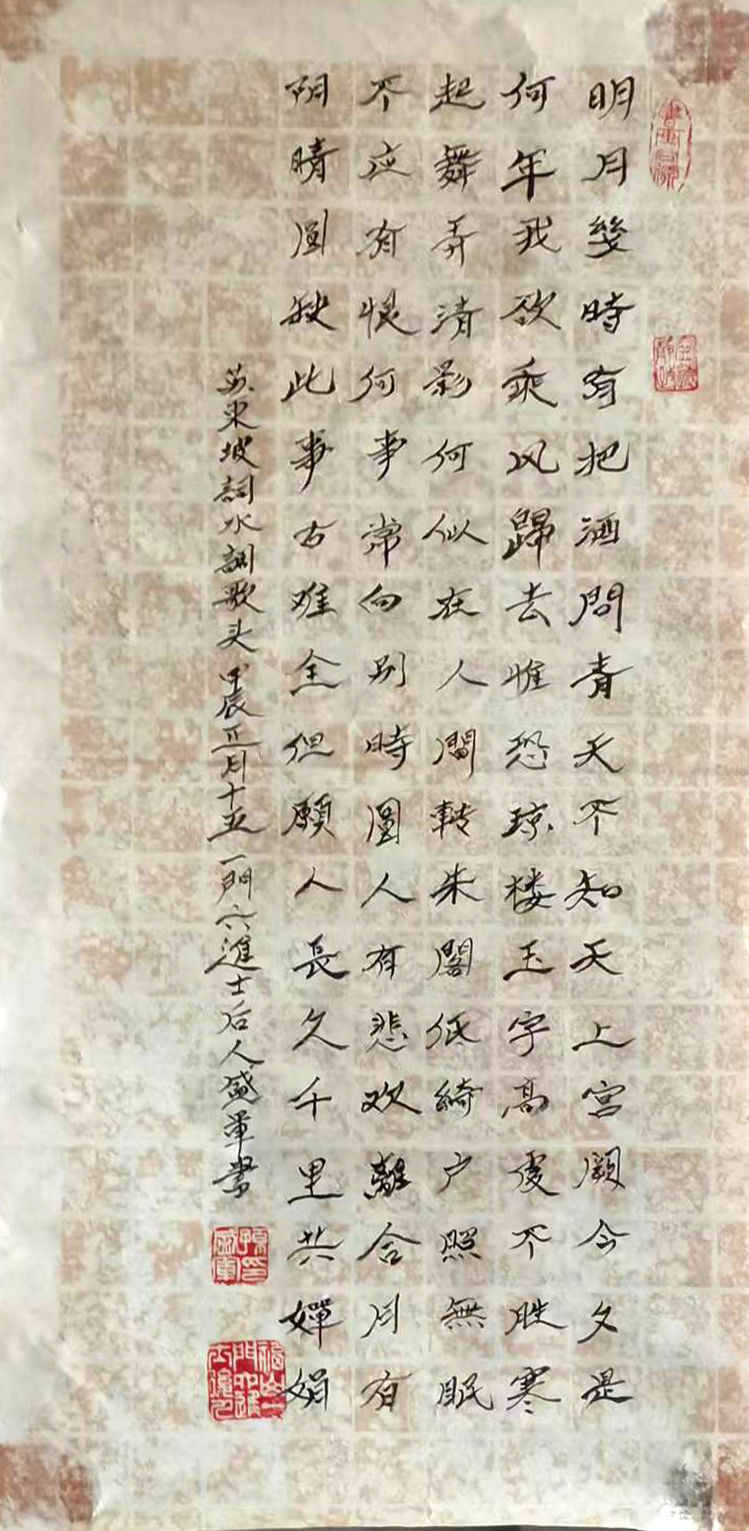 明月幾時有把酒問青天不知天上宮闕今夕是
何年我欲乘风歸去惟恐琼楼玉宇高處不胜寒
起舞弄清影何似在人間轉朱閣低綺户照無眠
不应有恨何事常向别時圓人有悲欢離合月有
阴晴圓缺此事古难全但願人長久千里共嬋娟
苏東坡詞水調歌头 甲辰正月十五一門六進士后人盛軍書